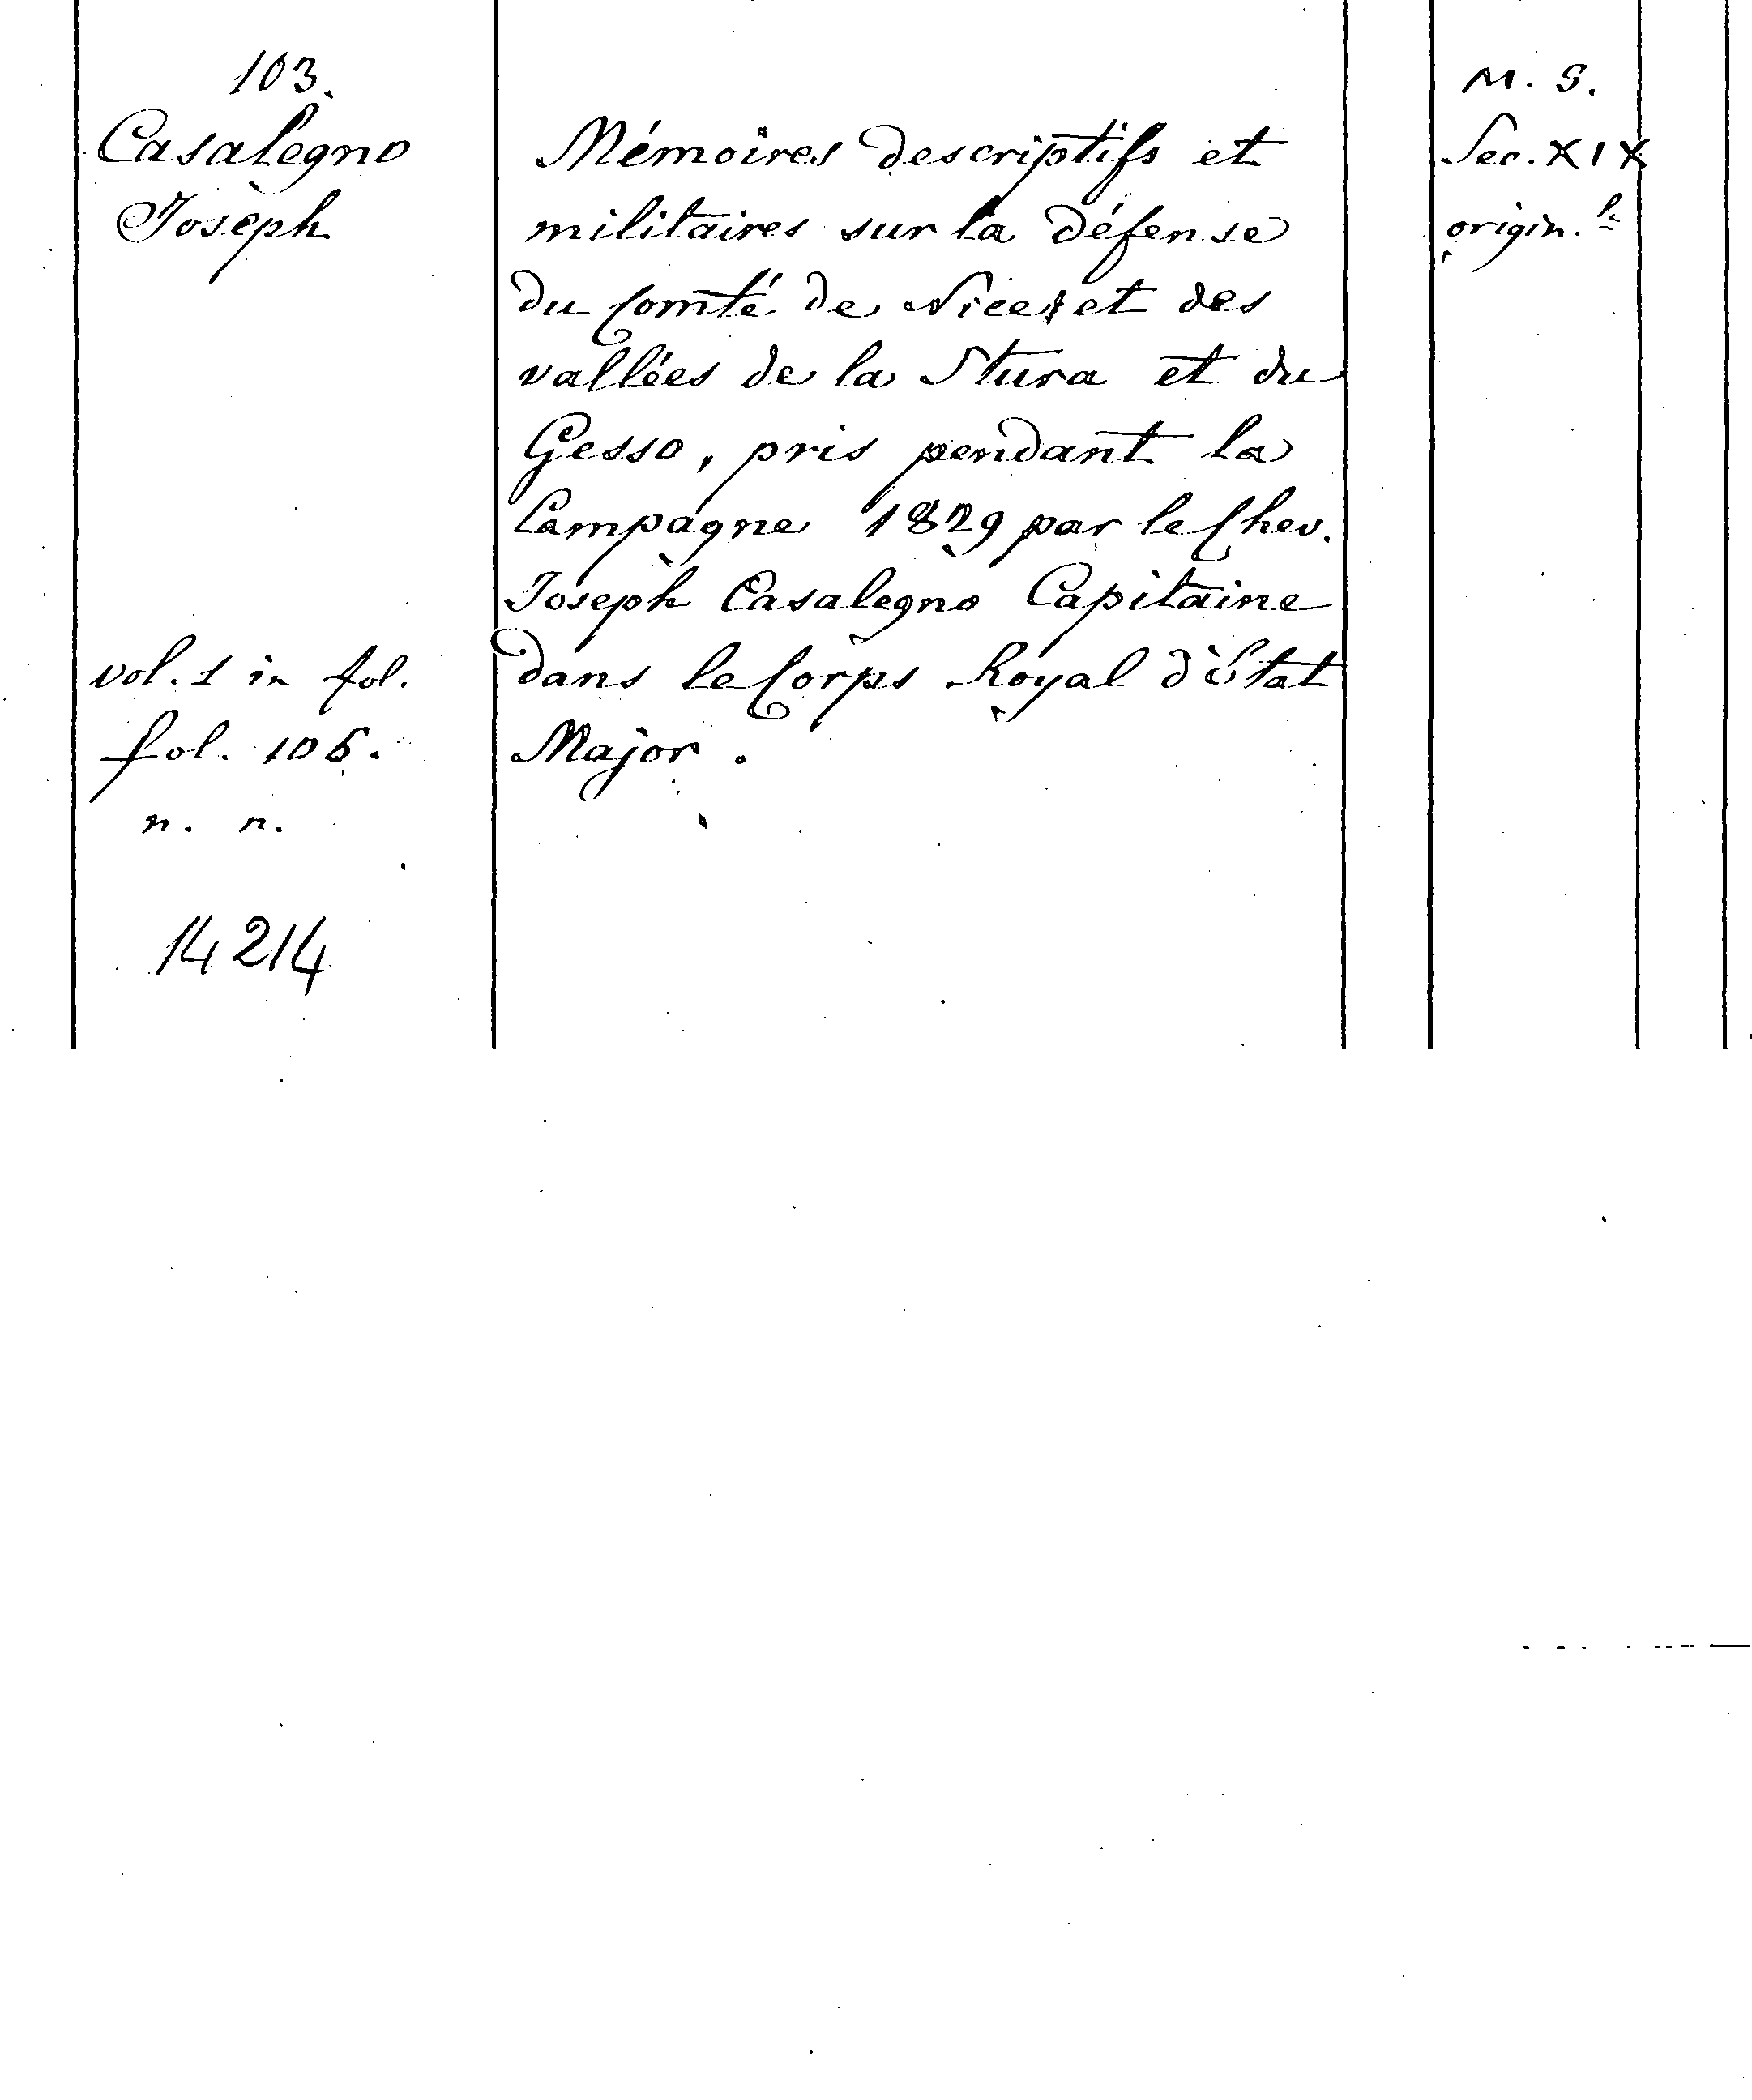 103.
Casalegno
Joseph
vol. 1 in fol.
fol. 106.
n. n.
14214
Mémoires descriptifs et
militaires sur la défense
du Comté de Nice et des
vallées de la Stura et du
Gesso, pris pendant la
Campagne 1829 par le Chev.
Joseph Casalegno Capitaine
dans le Corps Royal d'État
Major.
M. S.
Sec. XIX
origin.le